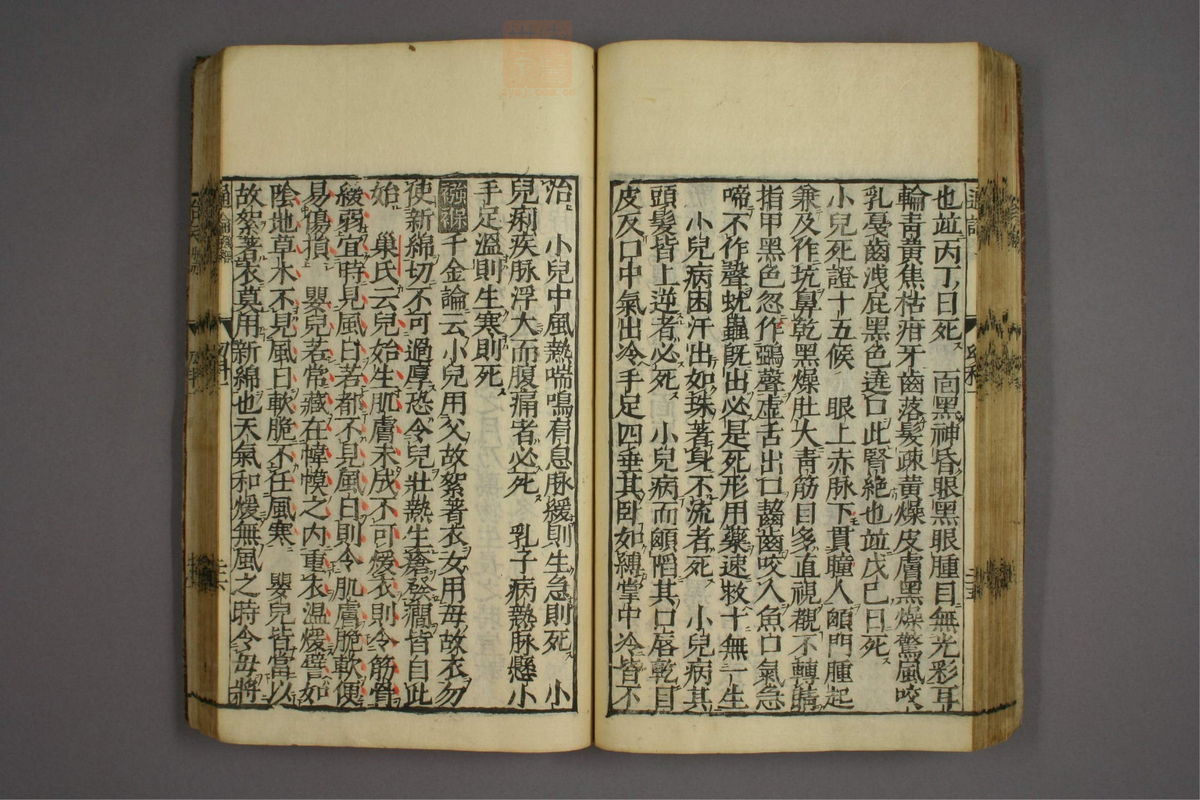 也並丙丁日死 面黑神昏眼黑眼腫目無光彩耳
輪青黃焦枯疳牙齒落髮疎黃燥皮膚黑燥驚風咬
乳戞齒洩屁黑色遶口此腎絶也並戊己日死
小兒死證十五候 眼上赤脉下貫瞳人顖門腫起
兼及作坑鼻乾黑燥肚大青筋目多直視覩不轉睛
指甲黑色忽作鵶聲虚舌出口齧齒咬人魚口氣急
啼不作聲蚘蟲既出必是死形用藥速救十無一生
小兒病困汗出如珠著身不流者死 小兒病其
頭髮皆上逆者必死 小兒病而顖陷其口唇乾目
皮反口中氣出冷手足四垂其卧如縛掌中冷皆不
治 小兒中風熱喘鳴肩息脉緩則生急則死 小
兒痢疾脉浮大而腹痛者必死 乳子病熱脉懸小
手足溫則生寒則死
襁褓 千金論云小兒用父故絮著衣女用母故衣勿
使新綿切不可過厚恐令兒壯熱生瘡發癇皆自此
始 巢氏云兒始生肌膚未成不可煖衣則令筋骨
緩弱宜時見風日若都不見風日則令肌膚脆軟便
易傷損 嬰兒若常藏在幃幙之内重衣温煖譬如
陰地草木不見風日軟脆不任風寒 嬰兒皆當以
故絮著衣莫用新綿也天氣和煖無風之時令母將